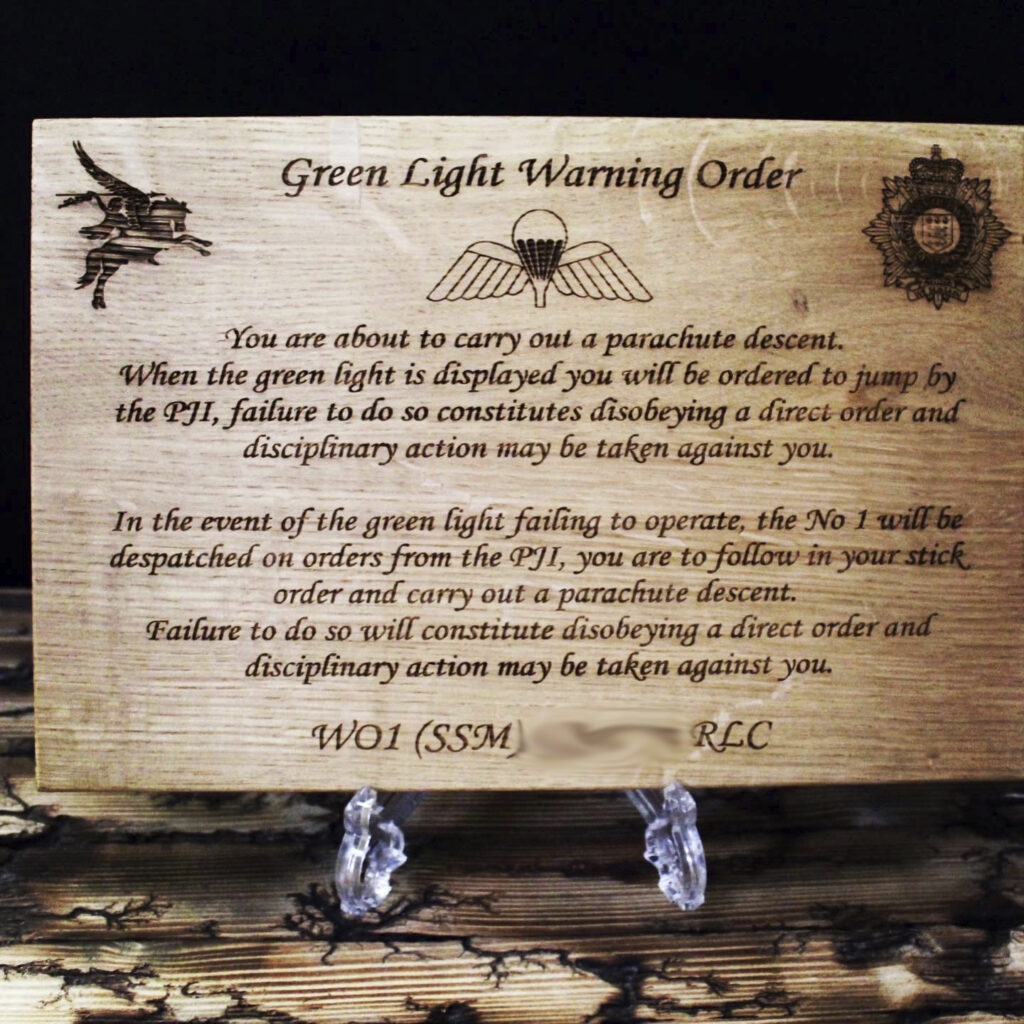 Green Light Warning Order
You are about to carry out a parachute descent.
When the green light is displayed you will be ordered to jump by
the PJI, failure to do so constitutes disobeying a direct order and
disciplinary action may be taken against you.
In the event of the green light failing to operate, the No 1 will be
despatched on orders from the PJI, you are to follow in your stick
order and carry out a parachute descent.
Failure to do so will constitute disobeying a direct order and
disciplinary action may be taken against you.
WO1 (SSM) RLC